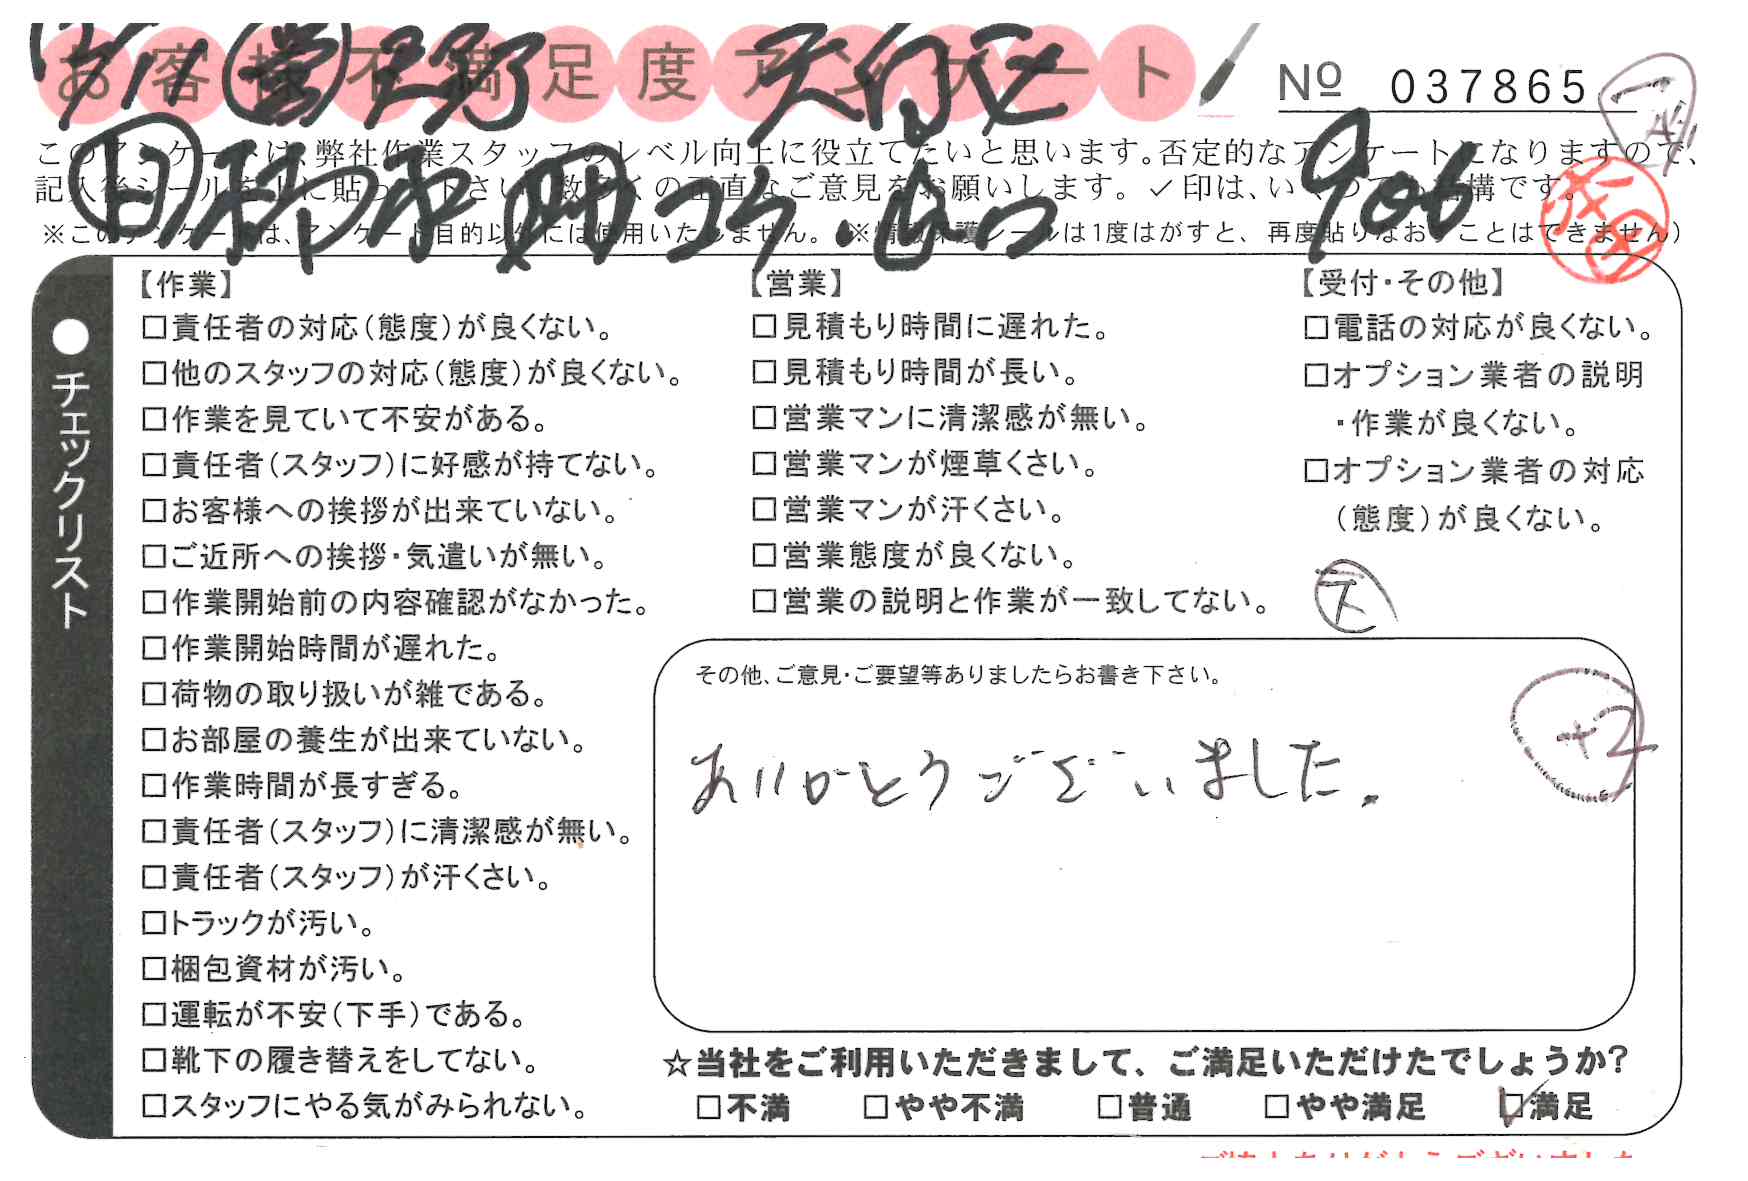 お客様不満足度アンケート
№ 037865
このアンケートは、弊社作業スタッフのレベル向上に役立てたいと思います。否定的なアンケートになりますので、
記入後シールを上に貼って下さい。数多くの正直なご意見をお願いします。✓印は、いくつでも結構です。
※このアンケートは、アンケート目的以外には使用いたしません。(※情報保護シールは1度はがすと、再度貼りなおすことはできません)
906
●チェックリスト
【作業】
□責任者の対応(態度)が良くない。
□他のスタッフの対応(態度)が良くない。
□作業を見ていて不安がある。
□責任者(スタッフ)に好感が持てない。
□お客様への挨拶が出来ていない。
□ご近所への挨拶・気遣いが無い。
□作業開始前の内容確認がなかった。
□作業開始時間が遅れた。
□荷物の取り扱いが雑である。
□お部屋の養生が出来ていない。
□作業時間が長すぎる。
□責任者(スタッフ)に清潔感が無い。
□責任者(スタッフ)が汗くさい。
□トラックが汚い。
□梱包資材が汚い。
□運転が不安(下手)である。
□靴下の履き替えをしてない。
□スタッフにやる気がみられない。
【営業】
□見積もり時間に遅れた。
□見積もり時間が長い。
□営業マンに清潔感が無い。
□営業マンが煙草くさい。
□営業マンが汗くさい。
□営業態度が良くない。
□営業の説明と作業が一致してない。
【受付・その他】
□電話の対応が良くない。
□オプション業者の説明
・作業が良くない。
□オプション業者の対応
(態度)が良くない。
その他、ご意見・ご要望等ありましたらお書き下さい。
+2
ありがとうございました。
☆当社をご利用いただきまして、ご満足いただけたでしょうか?
□不満 □やや不満 □普通 □やや満足 ☑満足